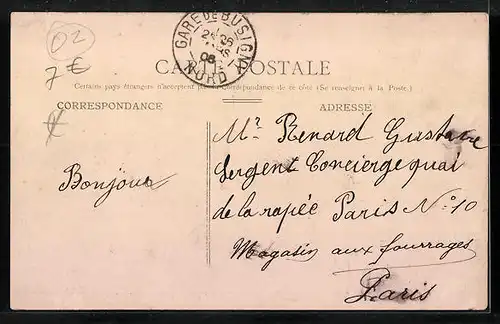 02
7€
GARE DE BUSIGNY
NORD
CARTE POSTALE
Certains pays étrangers n'acceptent pas de Correspondance de ce côté (Se renseigner à la Poste.)
CORRESPONDANCE
ADRESSE
Mr Renard Gustave
Sergent Concierge quai
de la rapée Paris No 10
Magasin aux fourrages
Paris
Bonjour